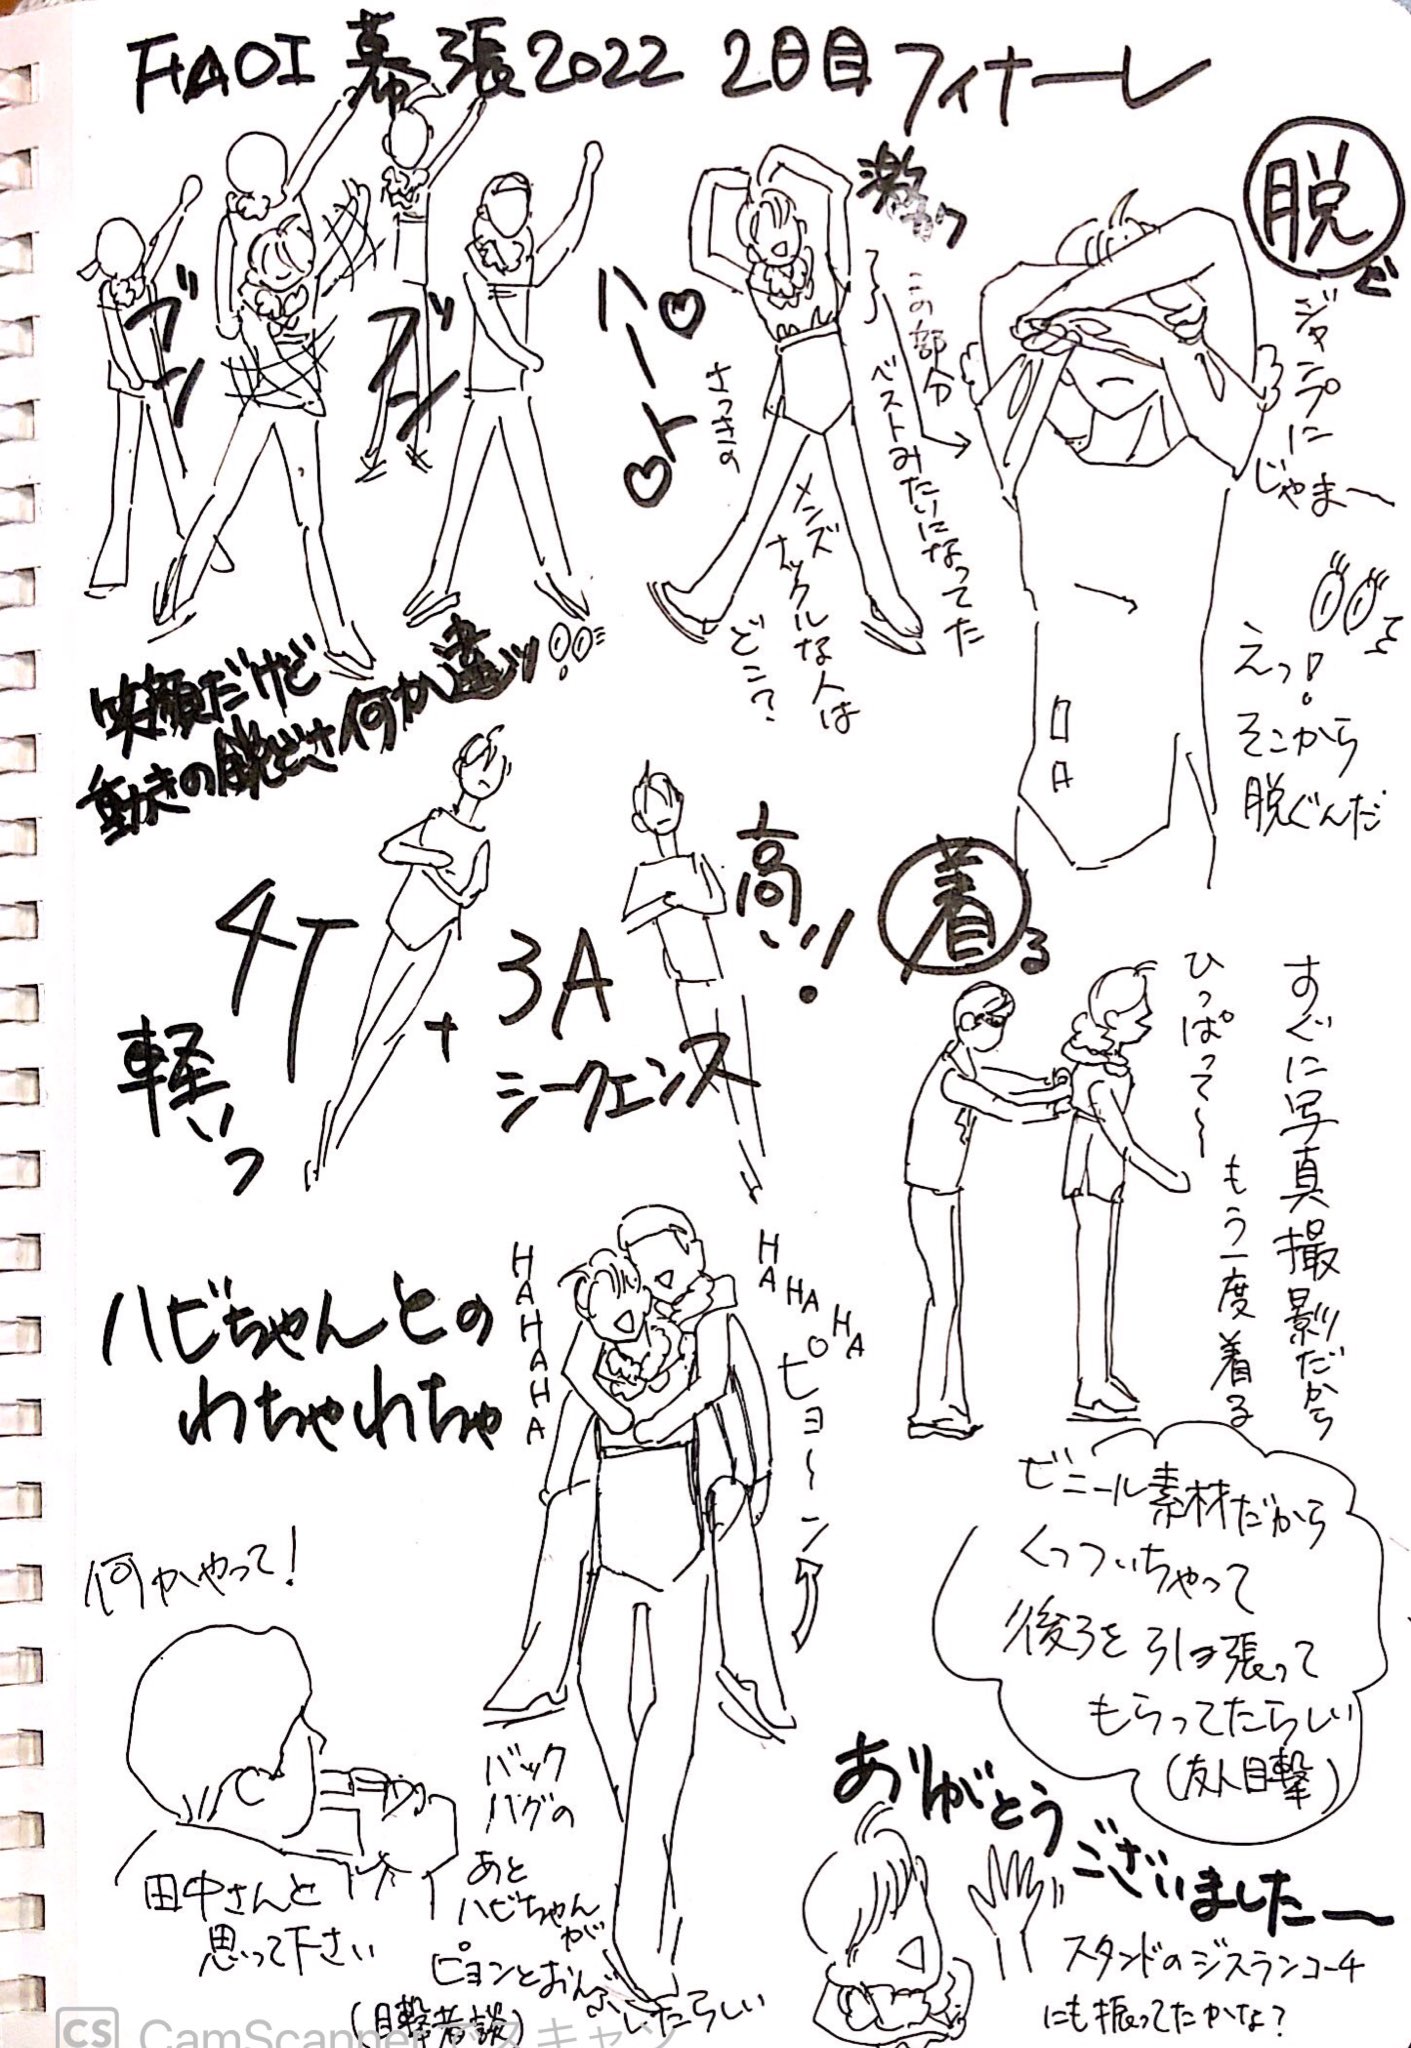 FIAOI 幕張2022 2日目 フィナーレ
ブン
ブン
笑顔だけど
動きの鋭どさ何か違ッ!!
ハート
激カワ
さっきの
メンズ
ナックルな人は
どこ?
この部分
ベストみたいになってた
脱ぐ
ジャンプに
じゃまー
えっ!
そこから
脱ぐんだ
4T
軽いっ
+
3A
シークェンス
高い!!
着る
ひっぱって〜
もう一度着る
すぐに写真撮影だから
ビニール素材だから
くっついちゃって
後ろを引っ張って
もらってたらしい
(友人目撃)
ハビちゃんとの
わちゃわちゃ
HAHAHAHA
HAHAHA
ピョ〜ン
何かやって!
田中さんと
思って下さい
バック
ハグの
あと
ハビちゃんが
ピョンとおんぶしたらしい
(目撃者談)
ありがとう
ございましたー
スタンドのジスランコーチ
にも振ってたかな?
CS CamScannerでスキャン